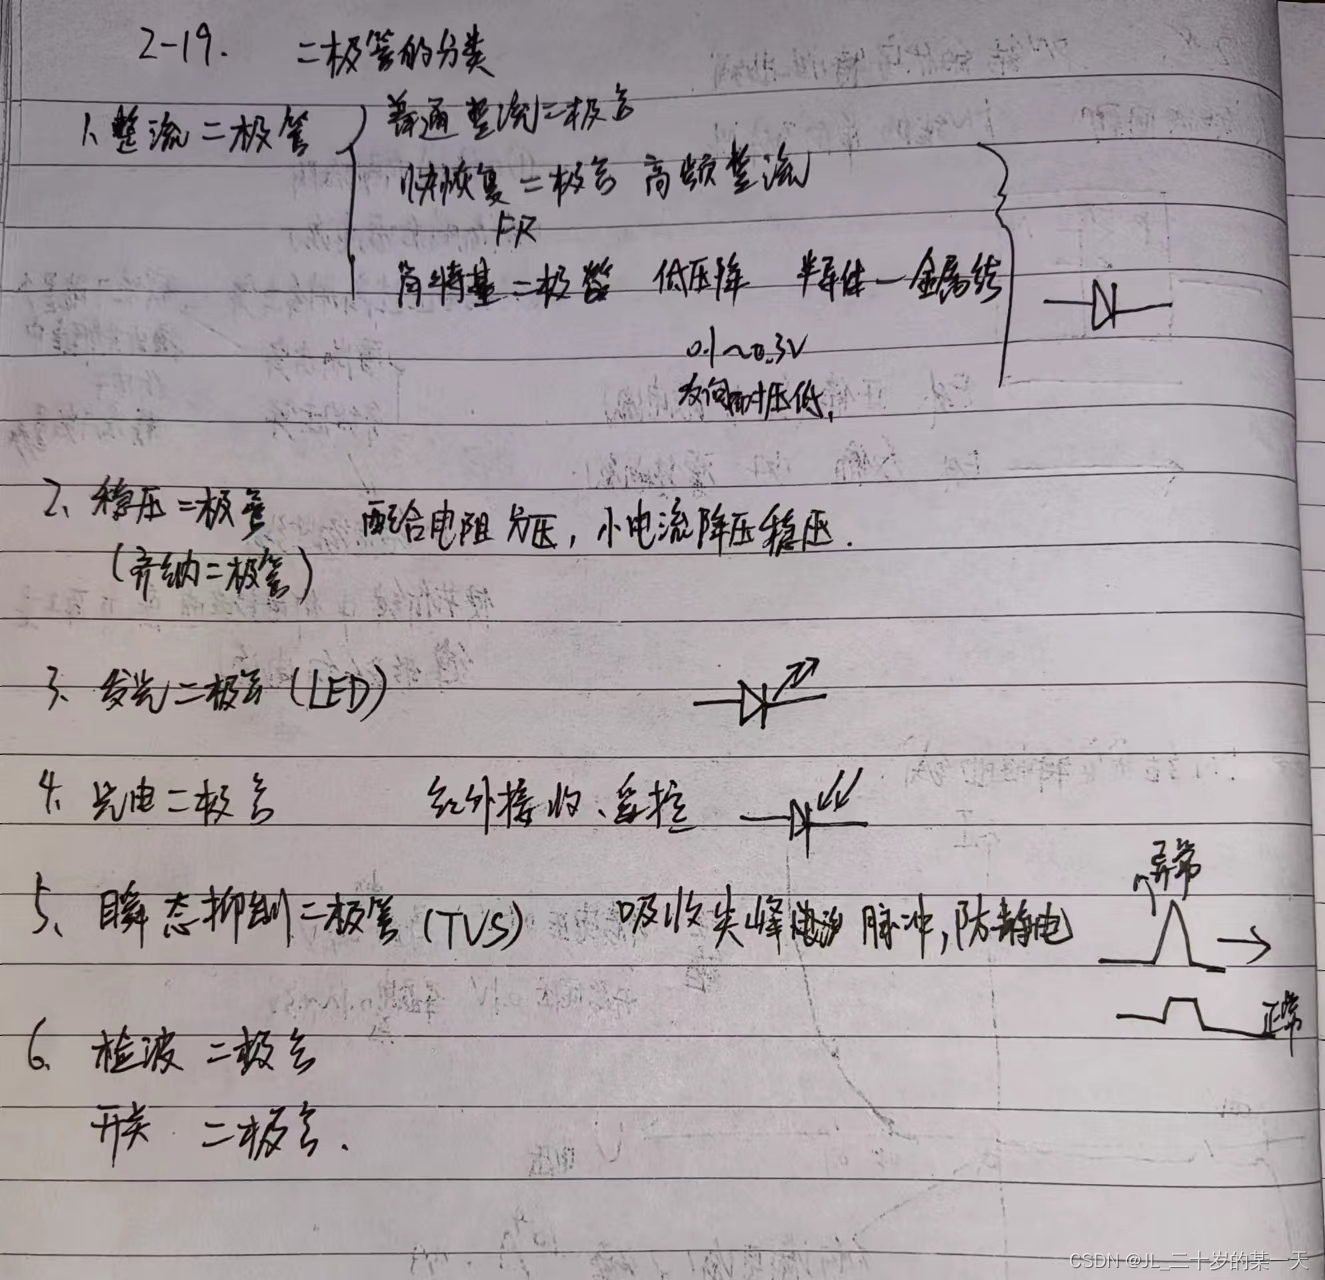 2-19. 二极管的分类
1、整流二极管
普通整流二极管
快恢复二极管 高频整流
FR
肖特基二极管 低压降 半导体—金属结
0.1~0.3V
反向耐压低,
2、稳压二极管 配合电阻分压,小电流降压稳压.
(齐纳二极管)
3、发光二极管(LED)
4、光电二极管 红外接收、遥控
异常
5、瞬态抑制二极管(TVS) 吸收尖峰 脉冲,防静电
正常
6、检波二极管
开关 二极管.
CSDN @JL_二十岁的某一天